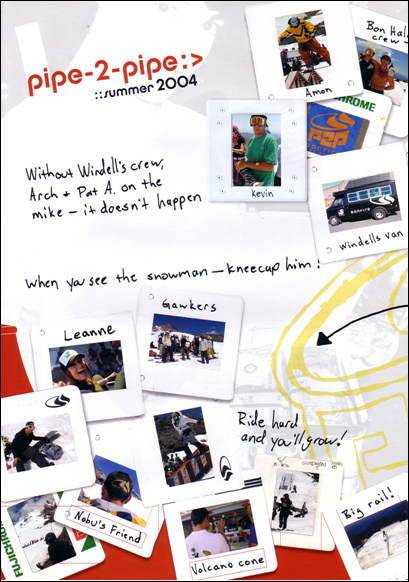 pipe-2-pipe:>
::summer 2004
Amon
Bon Hal
crew
CHROME
P2P
Kevin
Without Windell's crew,
Arch + Pat A. on the
mike – it doesn't happen
BONFIRE
Windells van
When you see the snowman – kneecup him!
Gawkers
Leanne
Ride hard
and you'll grow!
Nobu's Friend
FUJICHROME
Volcano cone
Big rail!